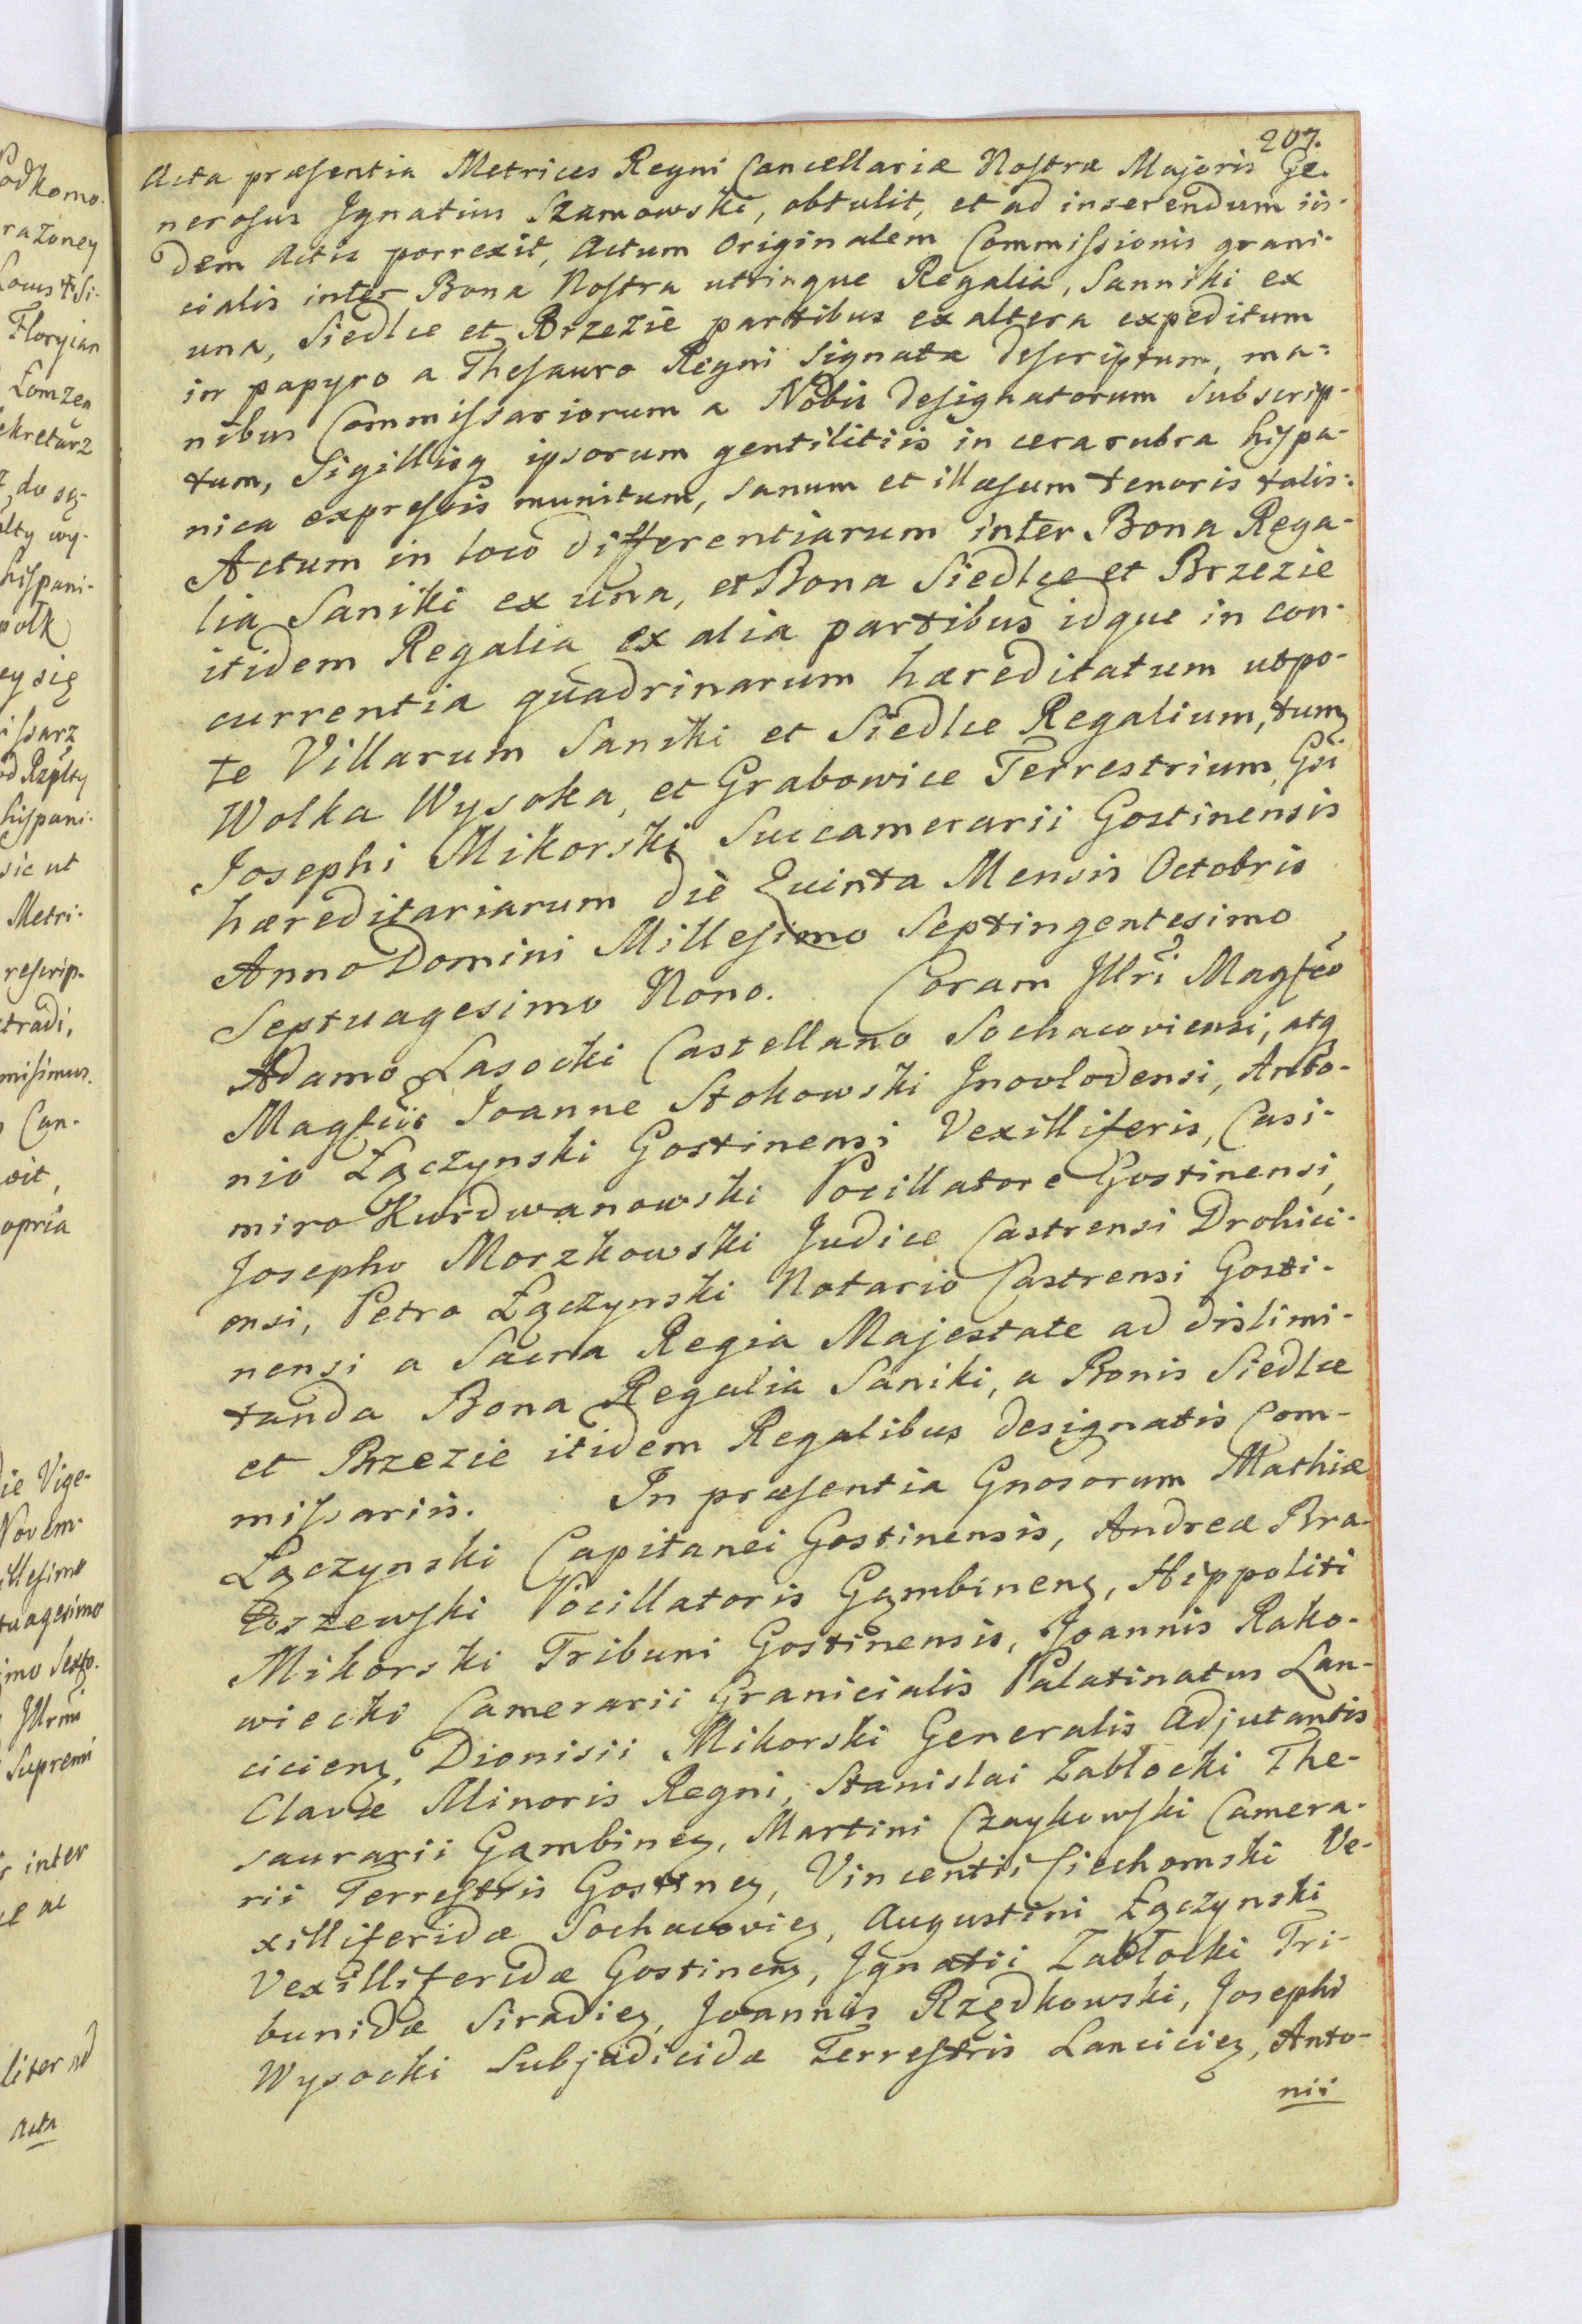 207.
Acta præsentia Metrices Regni Cancellariæ Nostræ Majoris Ge-
nerosus Ignatius Szamowski, obtulit, et ad inserendum iis-
dem Actis porrexit, Actum Originalem Commissionis grani-
cialis inter Bona Nostra utrinque Regalia, Sanniki ex
una, Siedlce et Brzezie partibus ex altera expeditum
in papyro a Thesauro Regni signata descriptum, ma-
nibus Commissariorum a Nobis designatorum subscrip-
tum, Sigillisq ipsorum gentilitiis in cera rubra hispa-
nica expressis munitum, sanum et illæsum tenoris talis:
Actum in loco differentiarum inter Bona Rega-
lia Saniki ex una, et Bona Siedlce et Brzezie
itidem Regalia ex alia partibus idque in con-
currentia quadrinarum hæreditatum utpo-
te Villarum Saniki et Siedlce Regalium, tum
Wolka Wysoka, et Grabowice Terrestrium, Gsi
Josephi Mikorski Succamerarii Gostinensis
hæreditariarum die Quinta Mensis Octobris
Anno Domini Millesimo Septingentesimo
Septuagesimo Nono. Coram Illri Magfco
Adamo Lasocki Castellano Sochacoviensi, atq
Magfcis Joanne Stokowski Inovlodensi, Anto-
nio Łączynski Gostinensi Vexilliferis, Casi-
miro Kurdwanowski Pocillatore Gostinensi,
Josepho Morzkowski Judice Castrensi Drohici-
ensi, Petro Łączynski Notario Castrensi Gosti-
nensi a Sacra Regia Majestate ad dislimi-
tanda Bona Regalia Saniki, a Bonis Siedlce
et Brzezie itidem Regalibus designatis Com-
missariis. In præsentia Gnosorum Mathiæ
Łączynski Capitanei Gostinensis, Andreæ Bra-
toszewski Pocillatoris Gąmbinenz, Hippoliti
Mikorski Tribuni Gostinensis, Joannis Rako-
wiecki Camerarii Granicialis Palatinatus Lan-
cicienz, Dionisii Mikorski Generalis Adjutantis
Clavæ Minoris Regni, Stanislai Zabłocki The-
saurarii Gąmbinez, Martini Czaykowski Camera-
rii Terrestris Gostinez, Vincentii Ciechomski Ve-
xilliferidæ Sochacoviez, Augustini Łączynski
Vexilliferidæ Gostinenz, Ignatii Zabłocki Tri-
bunidæ Siradiez, Joannis Rzędkowski, Josephi
Wysocki Subjudicidæ Terrestris Lanciciez, Anto-
nii